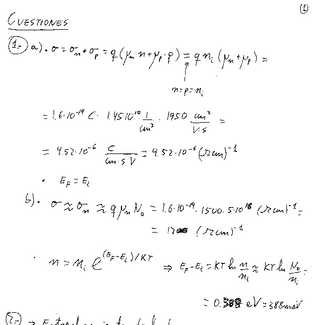 (1)
CUESTIONES
1.- a) . σ = σn + σp = q (μn n + μp · p) = q ni (μn + μp) =
n=p=ni
= 1.6·10⁻¹⁹ C · 1.45·10¹⁰ 1/cm³ · 1950 cm²/V·s =
= 4.52·10⁻⁶ C/cm·s·V = 4.52·10⁻⁶ (Ωcm)⁻¹
· EF = Ei
b). σ ≈ σn ≈ q μn ND = 1.6·10⁻¹⁹ · 1500 · 5·10¹⁶ (Ωcm)⁻¹ =
= (Ωcm)⁻¹
· n = ni e^(EF-Ei)/KT ⇒ EF-Ei = KT ln n/ni ≈ KT ln ND/ni =
= 0.388 eV = 388 meV
2.-